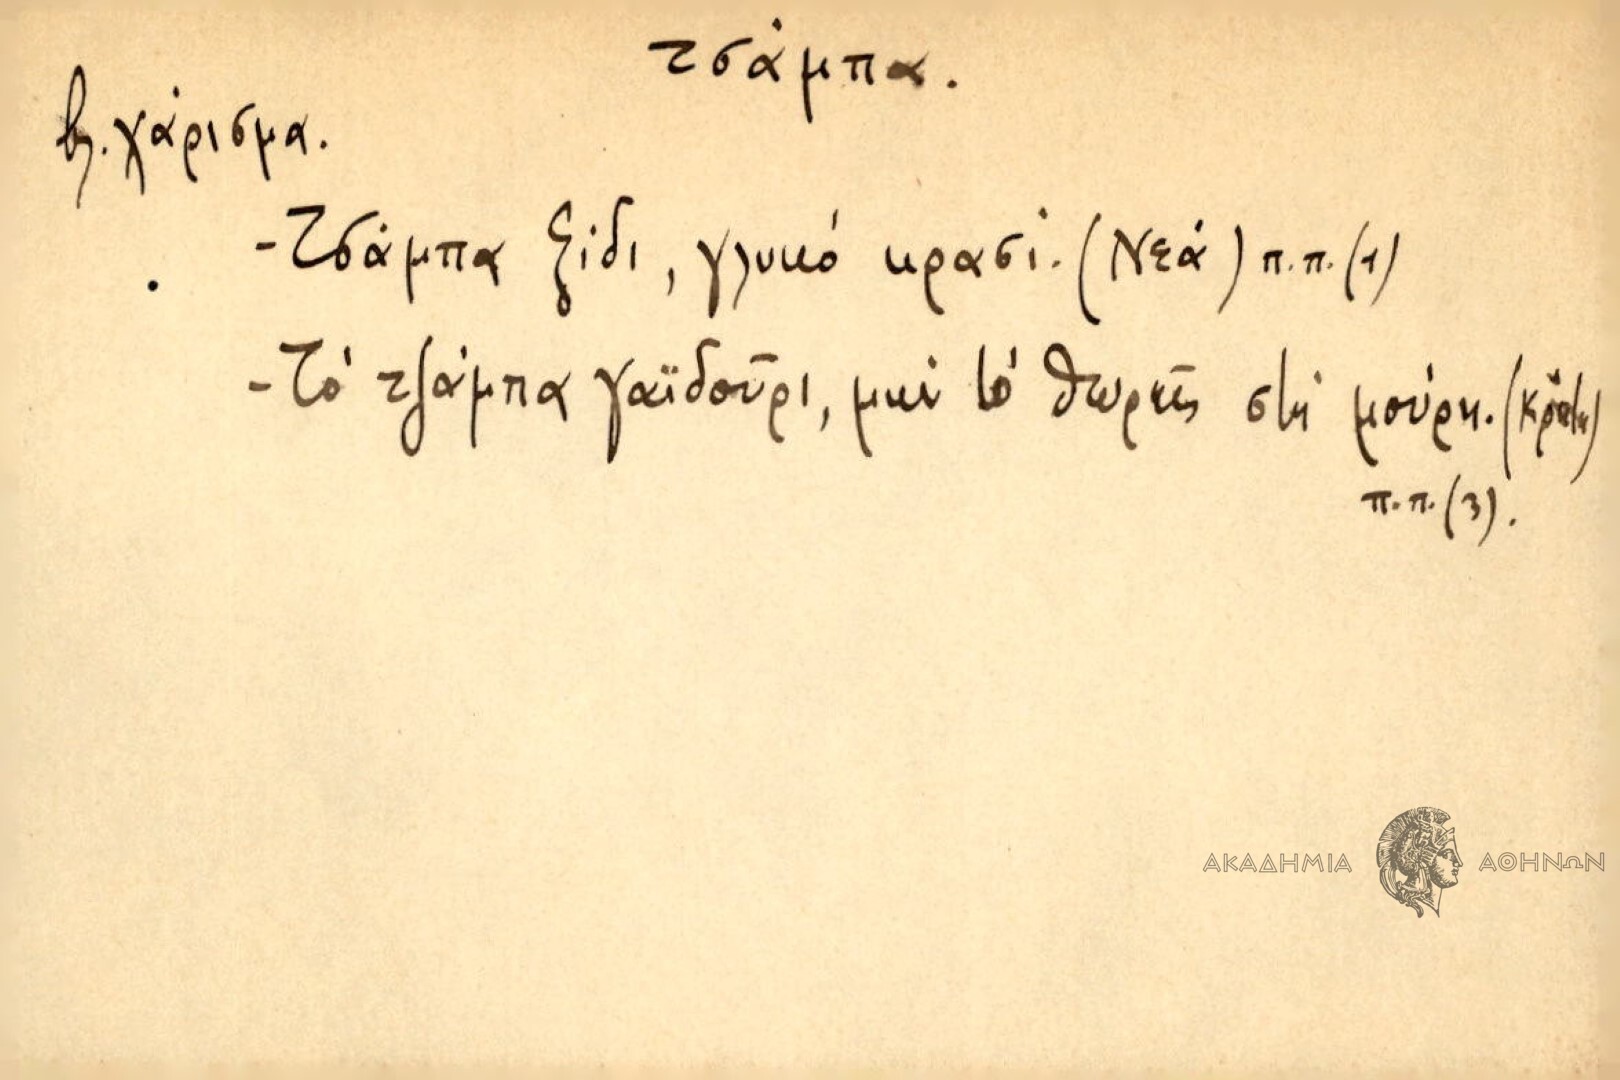 τσάμπα.
βλ. χάρισμα.
-Τσάμπα ξίδι, γλυκό κρασί. (Νεά) π.π. (1)
-Τό τζάμπα γαϊδοῦρι, μή τό θωρῇς στή μούρη. (Κρήτη)
π.π. (3).
ΑΚΑΔΗΜΙΑ ΑΘΗΝΩΝ